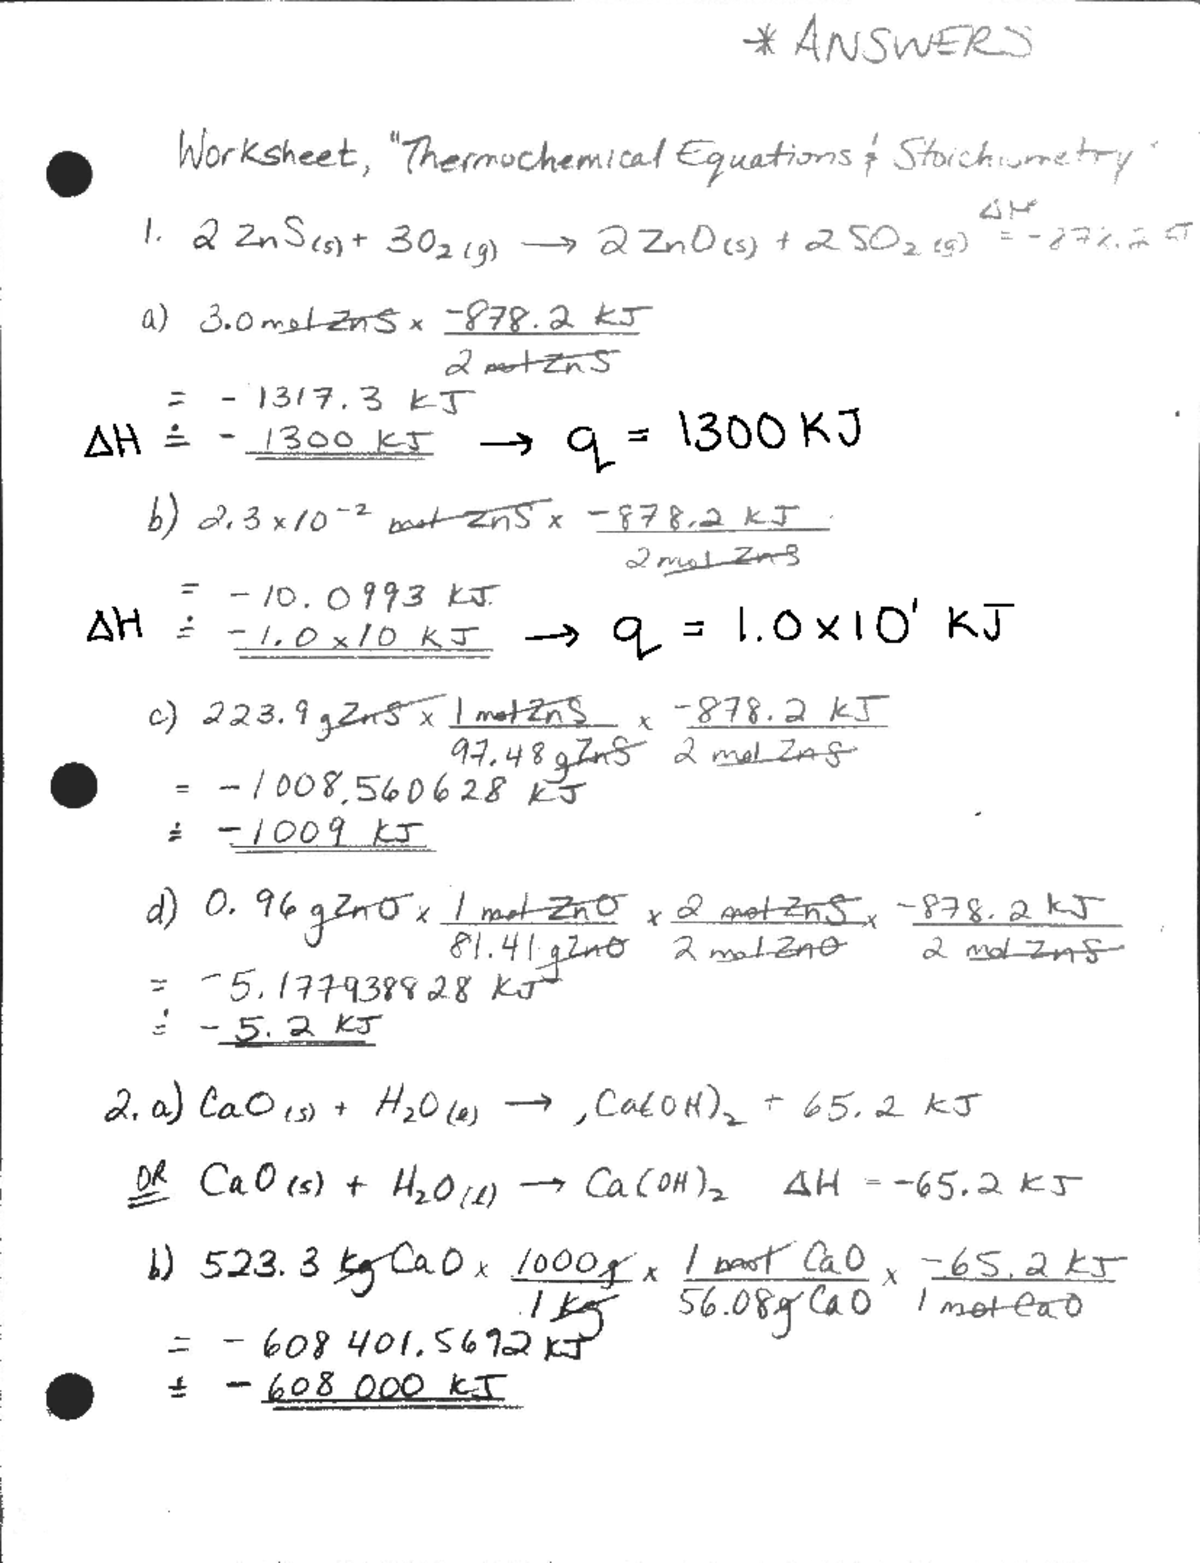 * ANSWERS
Worksheet, "Thermochemical Equations & Stoichiometry"
1. 2 ZnS(s) + 3O2(g) → 2 ZnO(s) + 2 SO2(g) ΔH = -878.2 KJ
a) 3.0 mol ZnS × -878.2 KJ
2 mol ZnS
= -1317.3 KJ
ΔH ≐ -1300 KJ → q = 1300 KJ
b) 2.3 x 10⁻² mol ZnS × -878.2 KJ
2 mol ZnS
= -10.0993 KJ.
ΔH ≐ -1.0 x 10 KJ → q = 1.0 x 10' KJ
c) 223.9 g ZnS × 1 mol ZnS × -878.2 KJ
97.48 g ZnS 2 mol ZnS
= -1008.560628 KJ
≐ -1009 KJ
d) 0.96 g ZnO × 1 mol ZnO × 2 mol ZnS × -878.2 KJ
81.41 g ZnO 2 mol ZnO 2 mol ZnS
= -5.177938828 KJ
≐ -5.2 KJ
2. a) CaO(s) + H2O(l) → Ca(OH)2 + 65.2 KJ
OR CaO(s) + H2O(l) → Ca(OH)2 ΔH = -65.2 KJ
b) 523.3 kg CaO × 1000g × 1 mol CaO × -65.2 KJ
1 kg 56.08g CaO 1 mol CaO
= -608 401.5692 KJ
≐ -608 000 KJ